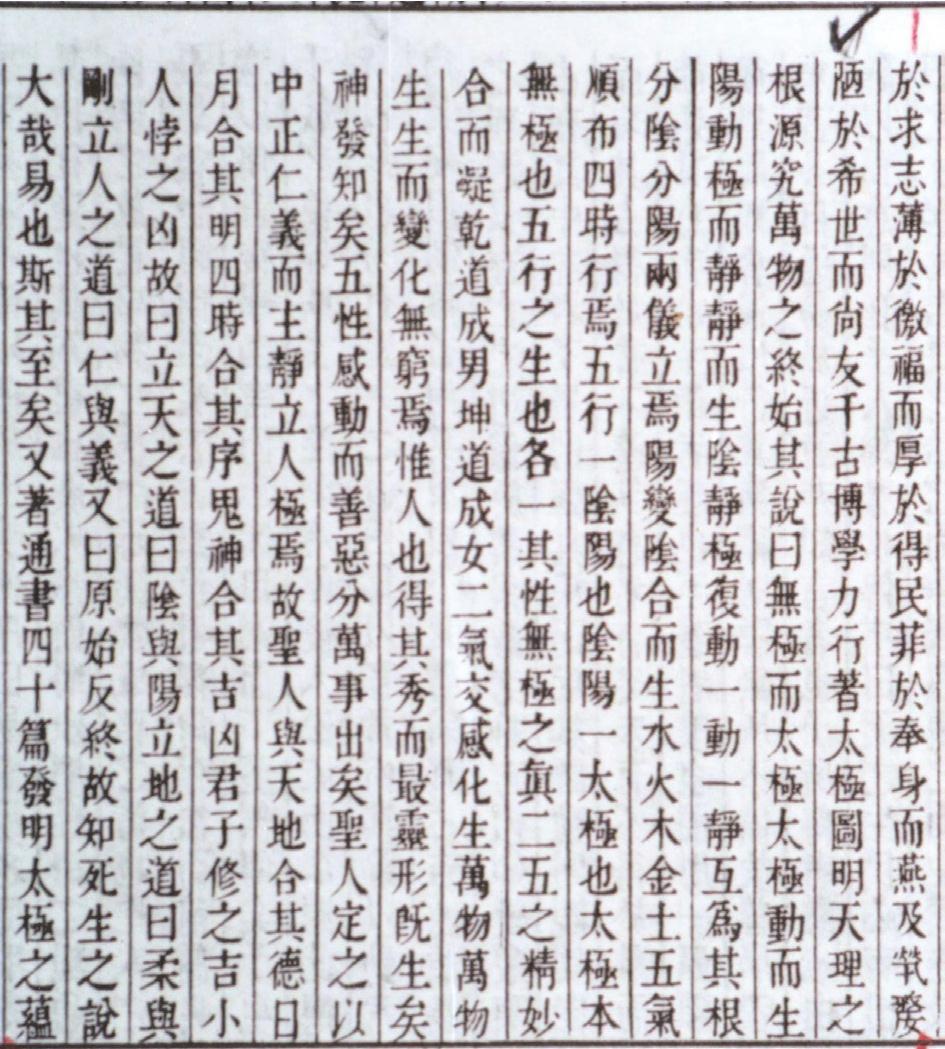 於求志薄於徼福而厚於得民菲於奉身而燕及煢嫠
陋於希世而尚友千古博學力行著太極圖明天理之
根源究萬物之終始其說曰無極而太極太極動而生
陽動極而靜靜而生陰靜極復動一動一靜互爲其根
分陰分陽兩儀立焉陽變陰合而生水火木金土五氣
順布四時行焉五行一陰陽也陰陽一太極也太極本
無極也五行之生也各一其性無極之眞二五之精妙
合而凝乾道成男坤道成女二氣交感化生萬物萬物
生生而變化無窮焉惟人也得其秀而最靈形旣生矣
神發知矣五性感動而善惡分萬事出矣聖人定之以
中正仁義而主靜立人極焉故聖人與天地合其德日
月合其明四時合其序鬼神合其吉凶君子修之吉小
人悖之凶故曰立天之道曰陰與陽立地之道曰柔與
剛立人之道曰仁與義又曰原始反終故知死生之說
大哉易也斯其至矣又著通書四十篇發明太極之蘊